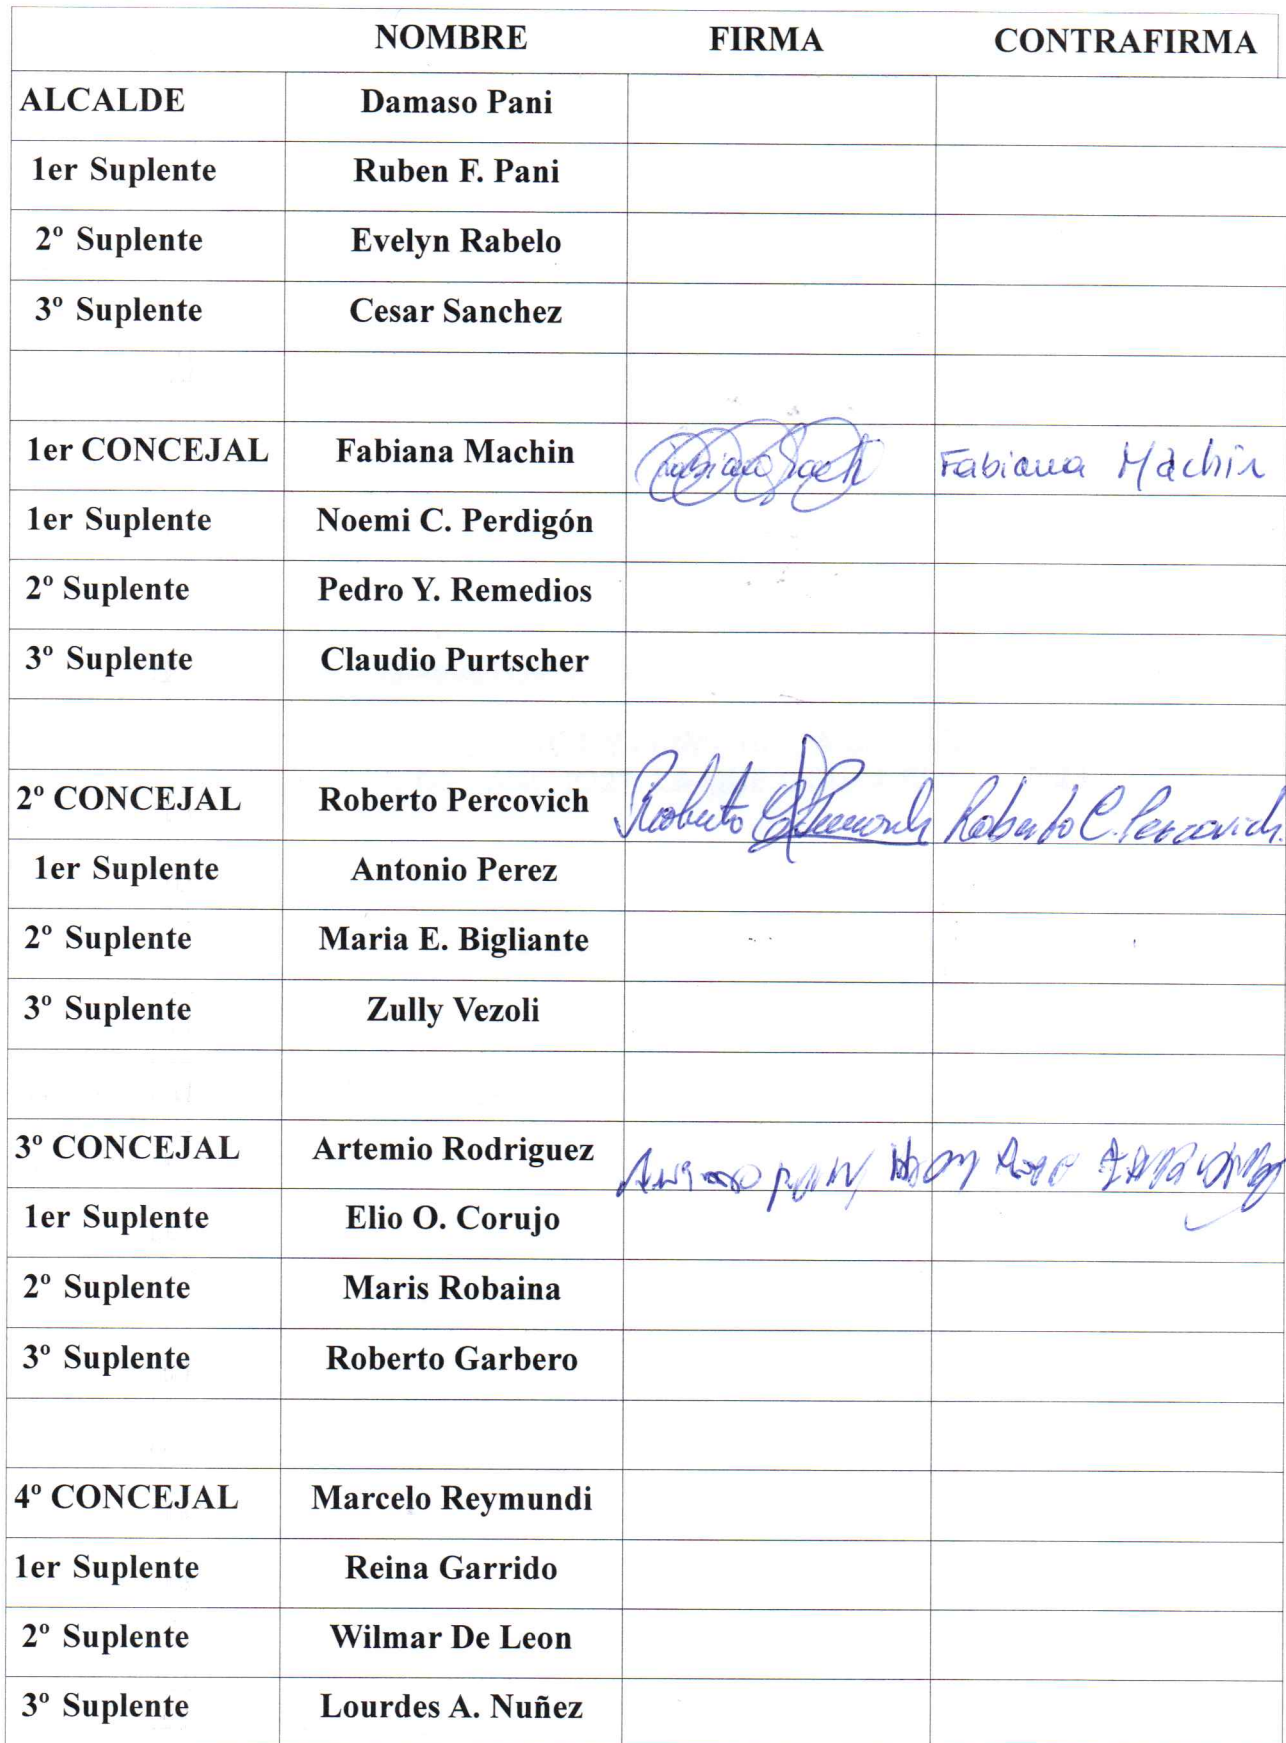 NOMBRE FIRMA CONTRAFIRMA
ALCALDE Damaso Pani
1er Suplente Ruben F. Pani
2º Suplente Evelyn Rabelo
3º Suplente Cesar Sanchez
1er CONCEJAL Fabiana Machin Fabiana Machin
1er Suplente Noemi C. Perdigón
2º Suplente Pedro Y. Remedios
3º Suplente Claudio Purtscher
2º CONCEJAL Roberto Percovich Roberto Roberto C. Percovich.
1er Suplente Antonio Perez
2º Suplente Maria E. Bigliante
3º Suplente Zully Vezoli
3º CONCEJAL Artemio Rodriguez
1er Suplente Elio O. Corujo
2º Suplente Maris Robaina
3º Suplente Roberto Garbero
4º CONCEJAL Marcelo Reymundi
1er Suplente Reina Garrido
2º Suplente Wilmar De Leon
3º Suplente Lourdes A. Nuñez